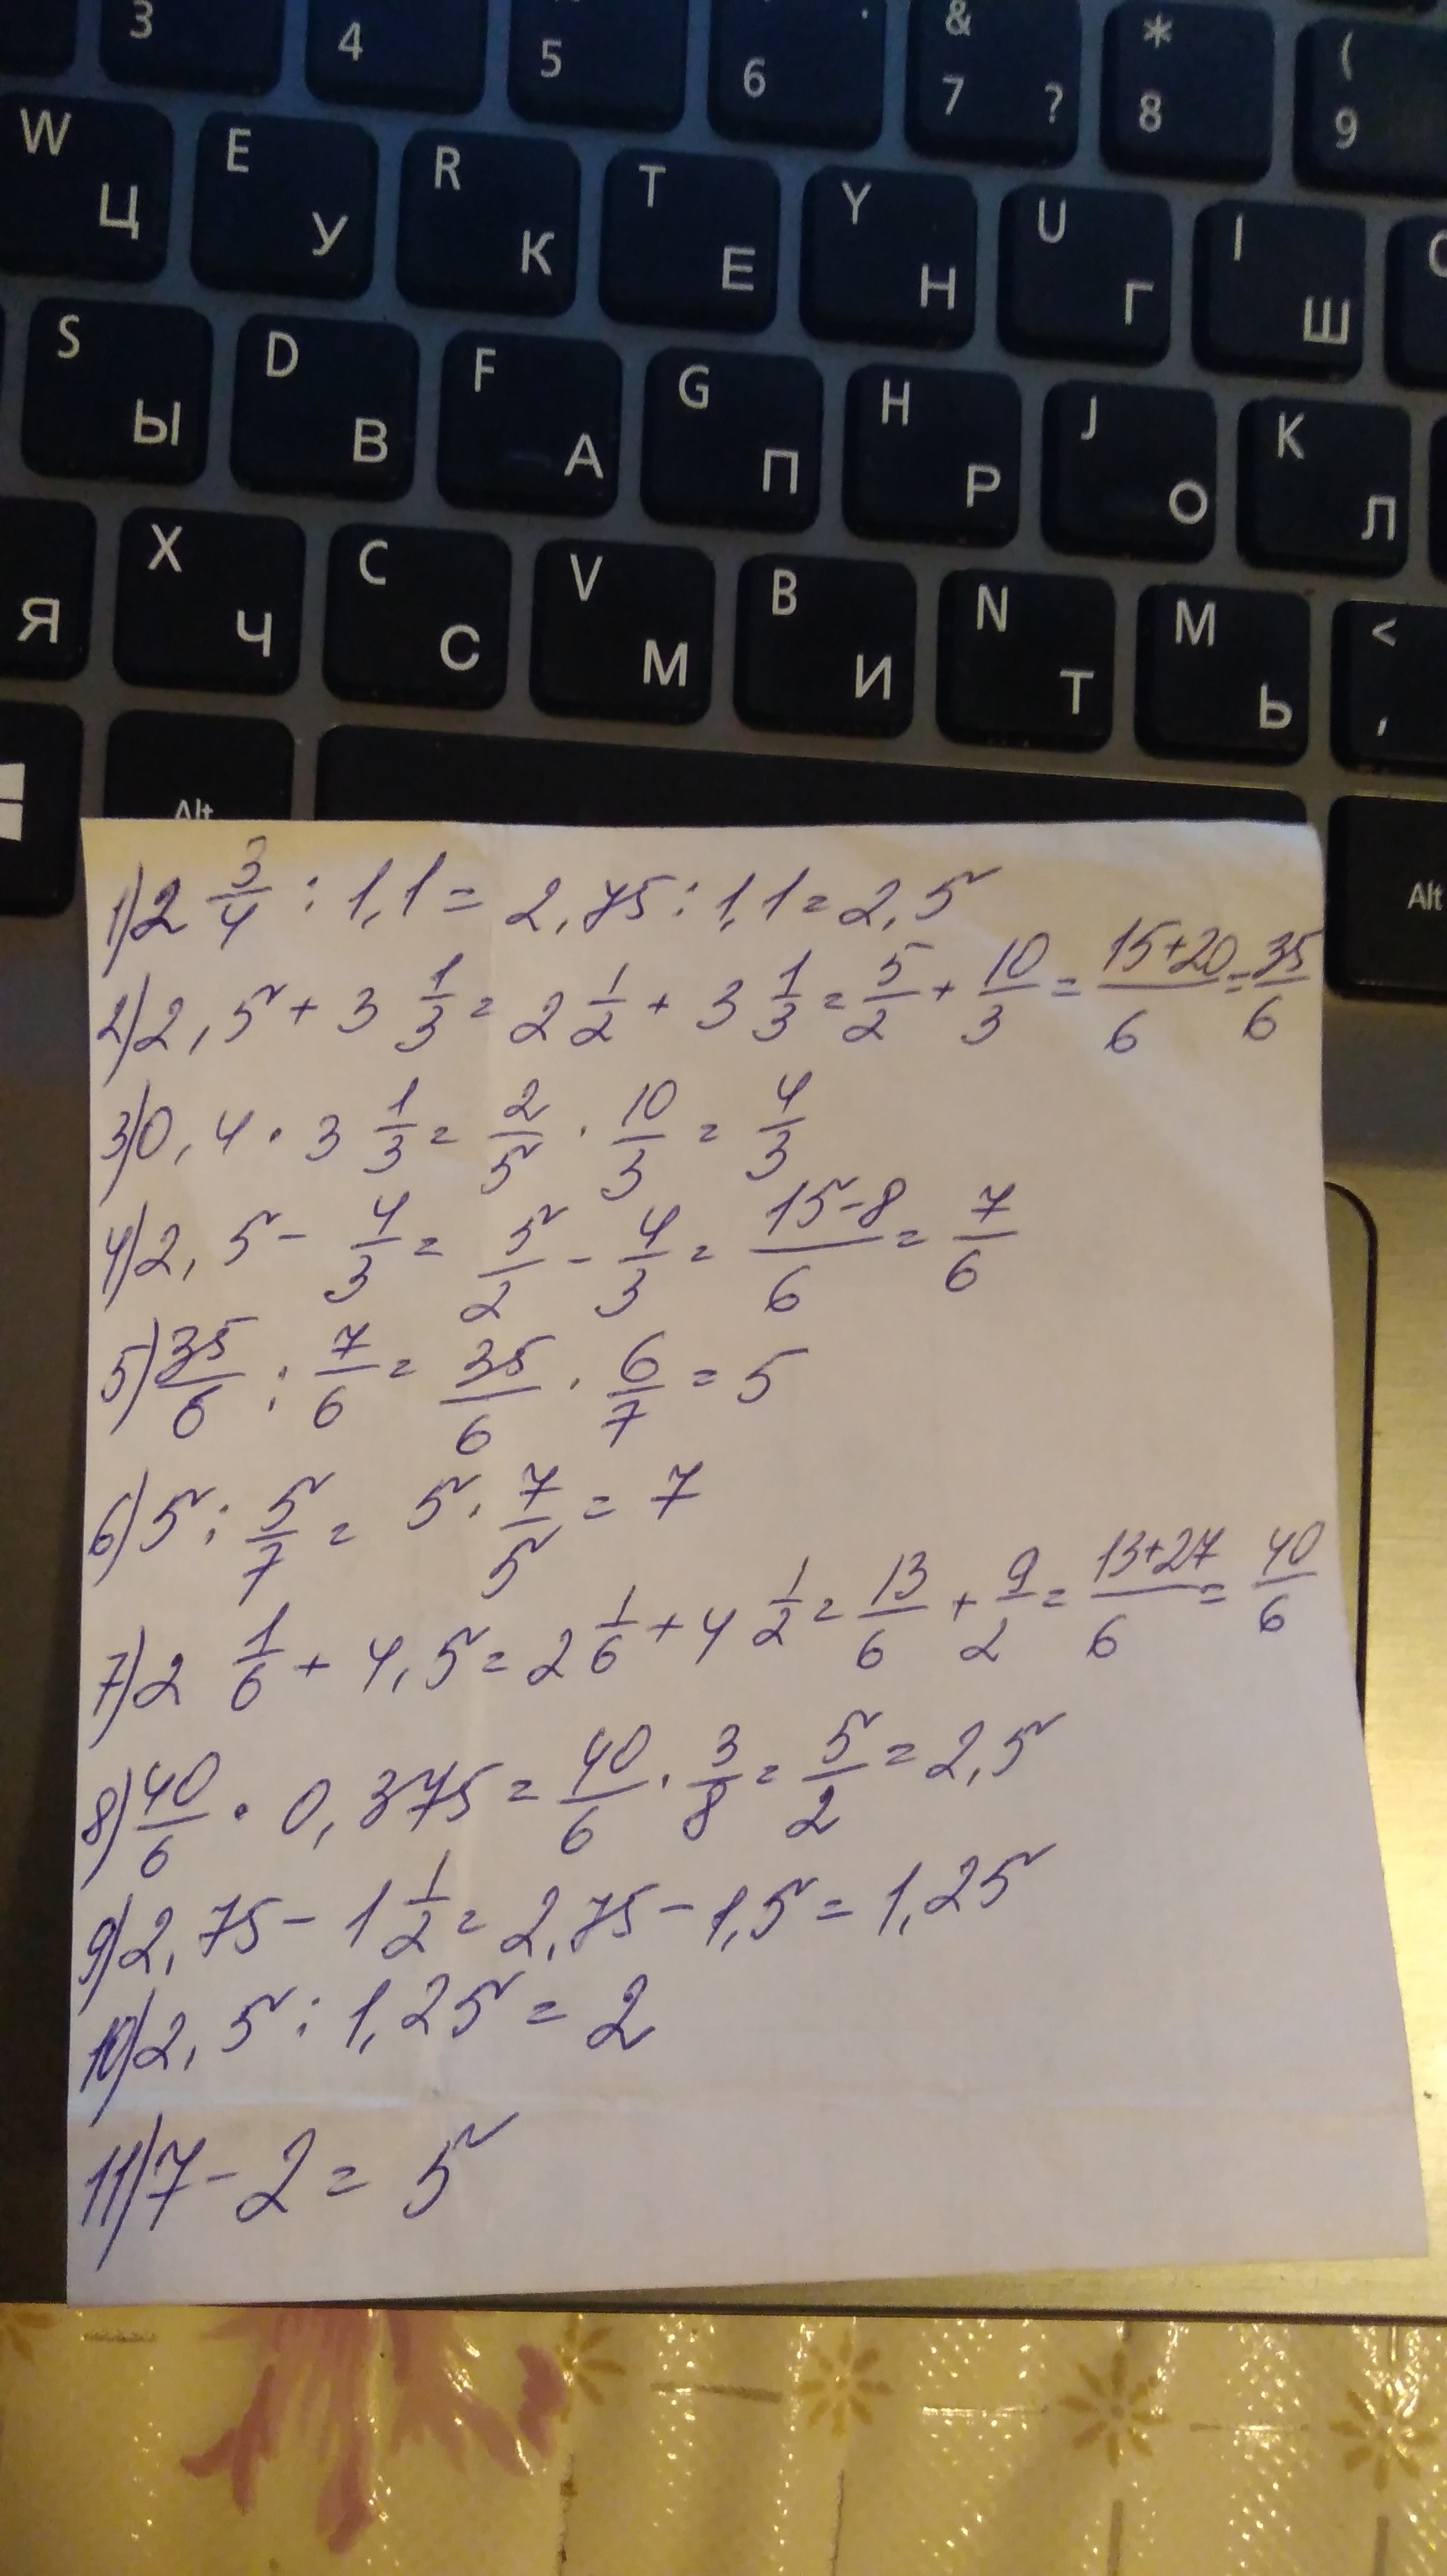 3 4 5 6 & 7 ? * 8 ( 9
W Ц E У R К T Е Y Н U Г I Ш
S Ы D В F А G П H Р J О K Л
Я X Ч C С V М B И N Т M Ь < ,
Alt Alt
1) 2 3/4 : 1,1 = 2,75 : 1,1 = 2,5
2) 2,5 + 3 1/3 = 2 1/2 + 3 1/3 = 5/2 + 10/3 = (15+20)/6 = 35/6
3) 0,4 · 3 1/3 = 2/5 · 10/3 = 4/3
4) 2,5 - 4/3 = 5/2 - 4/3 = (15-8)/6 = 7/6
5) 35/6 : 7/6 = 35/6 · 6/7 = 5
6) 5 : 5/7 = 5 · 7/5 = 7
7) 2 1/6 + 4,5 = 2 1/6 + 4 1/2 = 13/6 + 9/2 = (13+27)/6 = 40/6
8) 40/6 · 0,375 = 40/6 · 3/8 = 5/2 = 2,5
9) 2,75 - 1 1/2 = 2,75 - 1,5 = 1,25
10) 2,5 : 1,25 = 2
11) 7 - 2 = 5